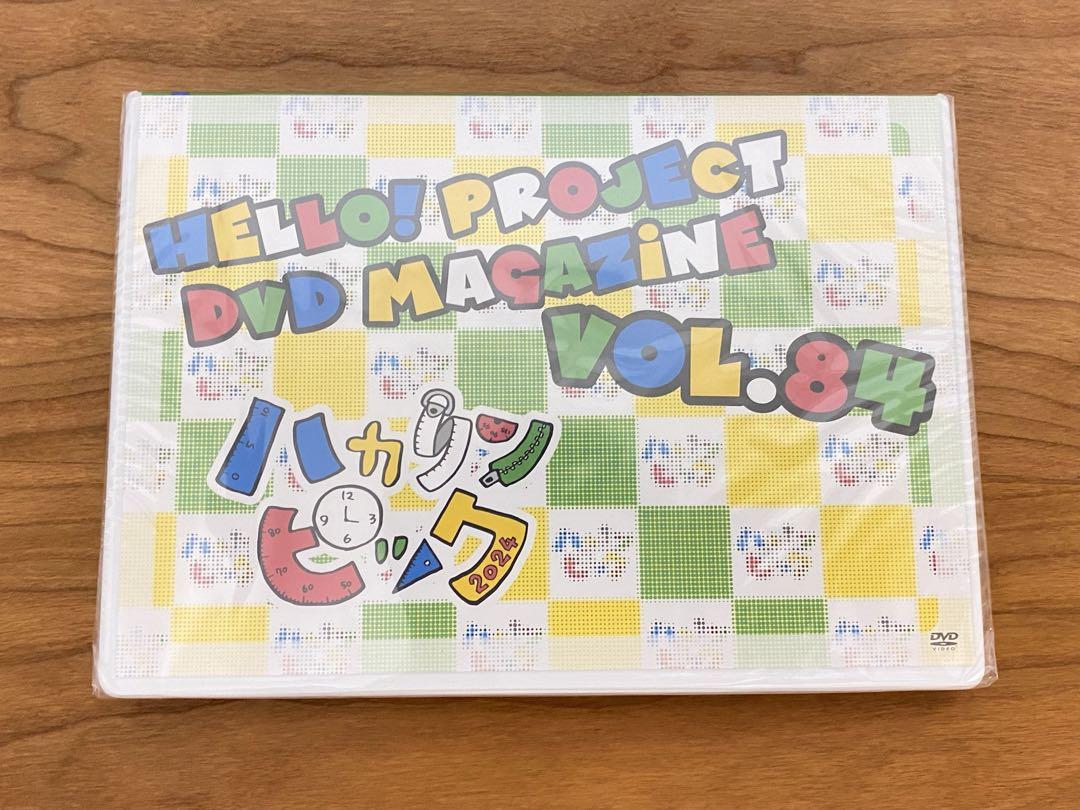 HELLO! PROJECT
DVD MAGAZINE
VOL.84
ハカリン
ピック
2024
12
9 3
6
10
5
0
80
70
60
50
DVD
VIDEO